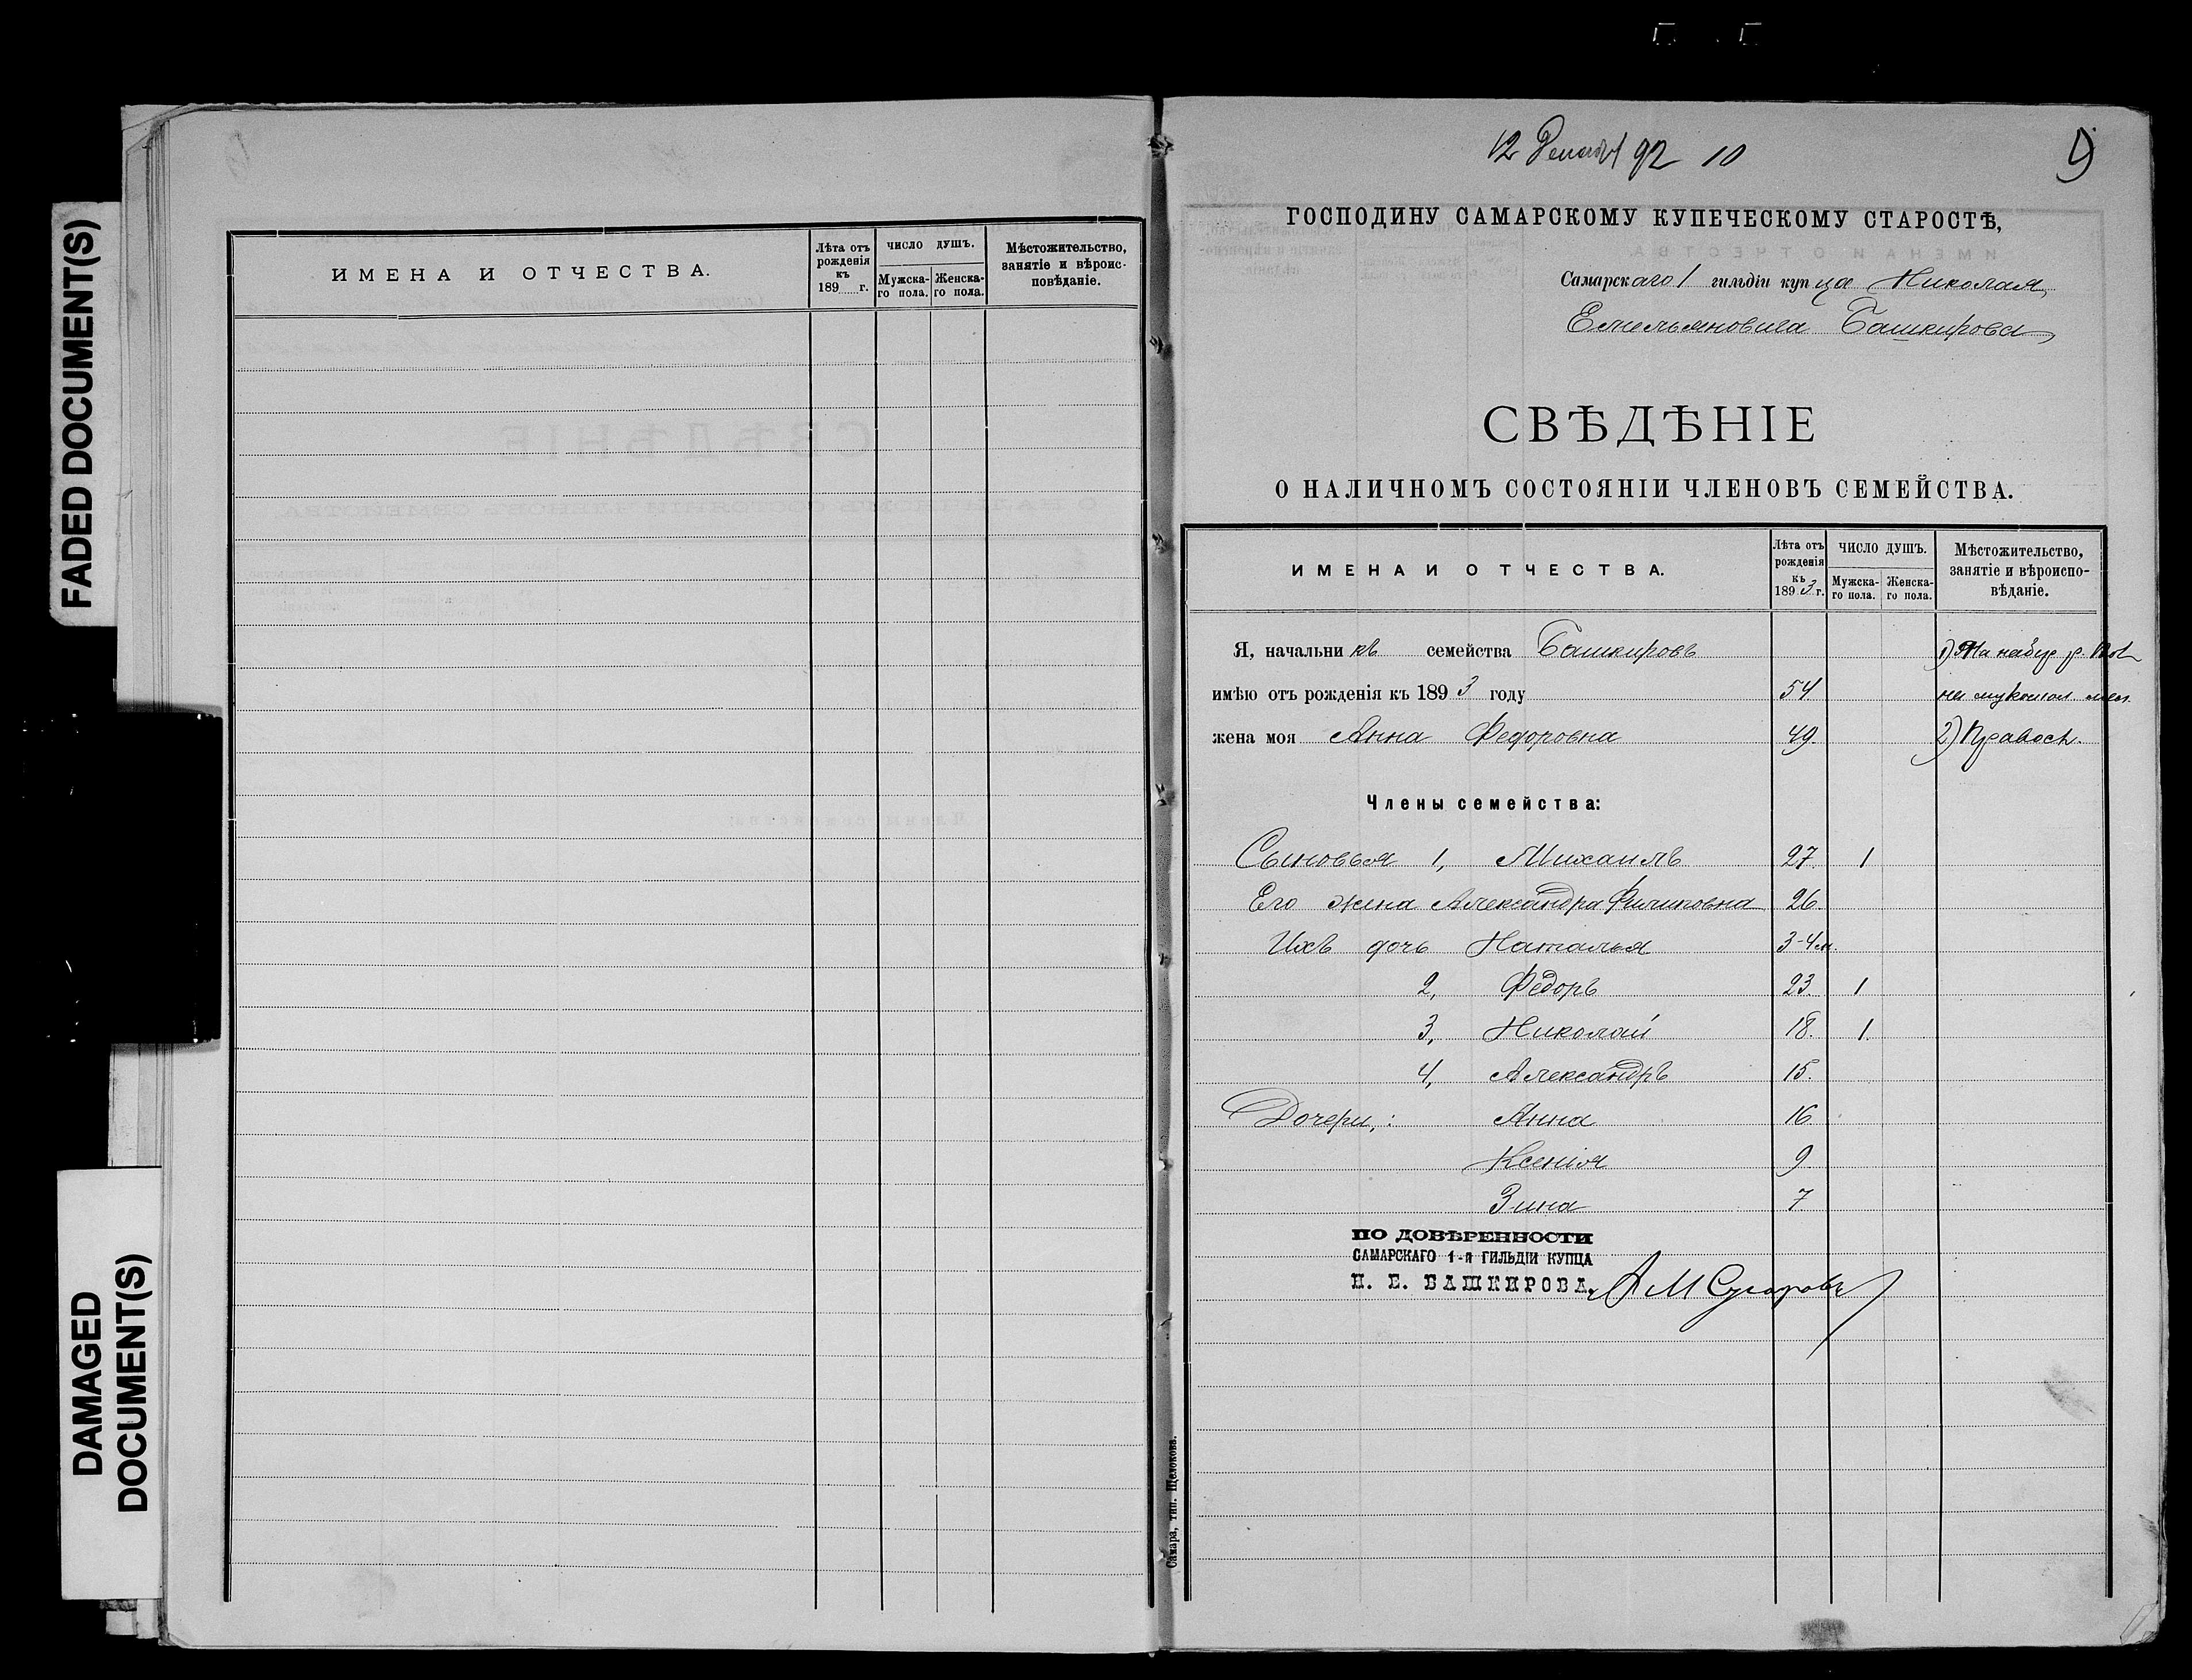 FADED DOCUMENT(S)
DAMAGED
DOCUMENT(S)
ИМЕНА И ОТЧЕСТВА.
Лѣта отъ рожденія къ 189 г.
ЧИСЛО ДУШЪ.
Мужска-го пола.
Женска-го пола.
Мѣстожительство, занятіе и вѣроис-повѣданіе.
12 Декабря 92 10
9
ГОСПОДИНУ САМАРСКОМУ КУПЕЧЕСКОМУ СТАРОСТѢ,
Самарскаго 1 гильдіи купца Николая
Емельяновича Башкирова
СВѢДѢНІЕ
О НАЛИЧНОМЪ СОСТОЯНІИ ЧЛЕНОВЪ СЕМЕЙСТВА.
ИМЕНА И ОТЧЕСТВА.
Лѣта отъ рожденія къ 1893 г.
ЧИСЛО ДУШЪ.
Мужска-го пола.
Женска-го пола.
Мѣстожительство, занятіе и вѣроиспо-вѣданіе.
Я, начальникъ семейства Башкировъ 1) На набер. р. Вол
имѣю отъ рожденія къ 1893 году 54 на мукомол. мел.
жена моя Анна Федоровна 49. 2) Правосл.
Члены семейства:
Сыновья 1, Михаилъ 27. 1
Его жена Александра Филиповна 26.
Ихъ дочь Наталья 3-4 м.
2, Федоръ 23. 1
3, Николай 18. 1.
4, Александръ 15.
Дочери,: Анна 16.
Ксенія 9
Зина 7
ПО ДОВѢРЕННОСТИ
САМАРСКАГО 1-й ГИЛЬДІИ КУПЦА
Н. Е. БАШКИРОВА. АМ
Самара, тип. Щелокова.